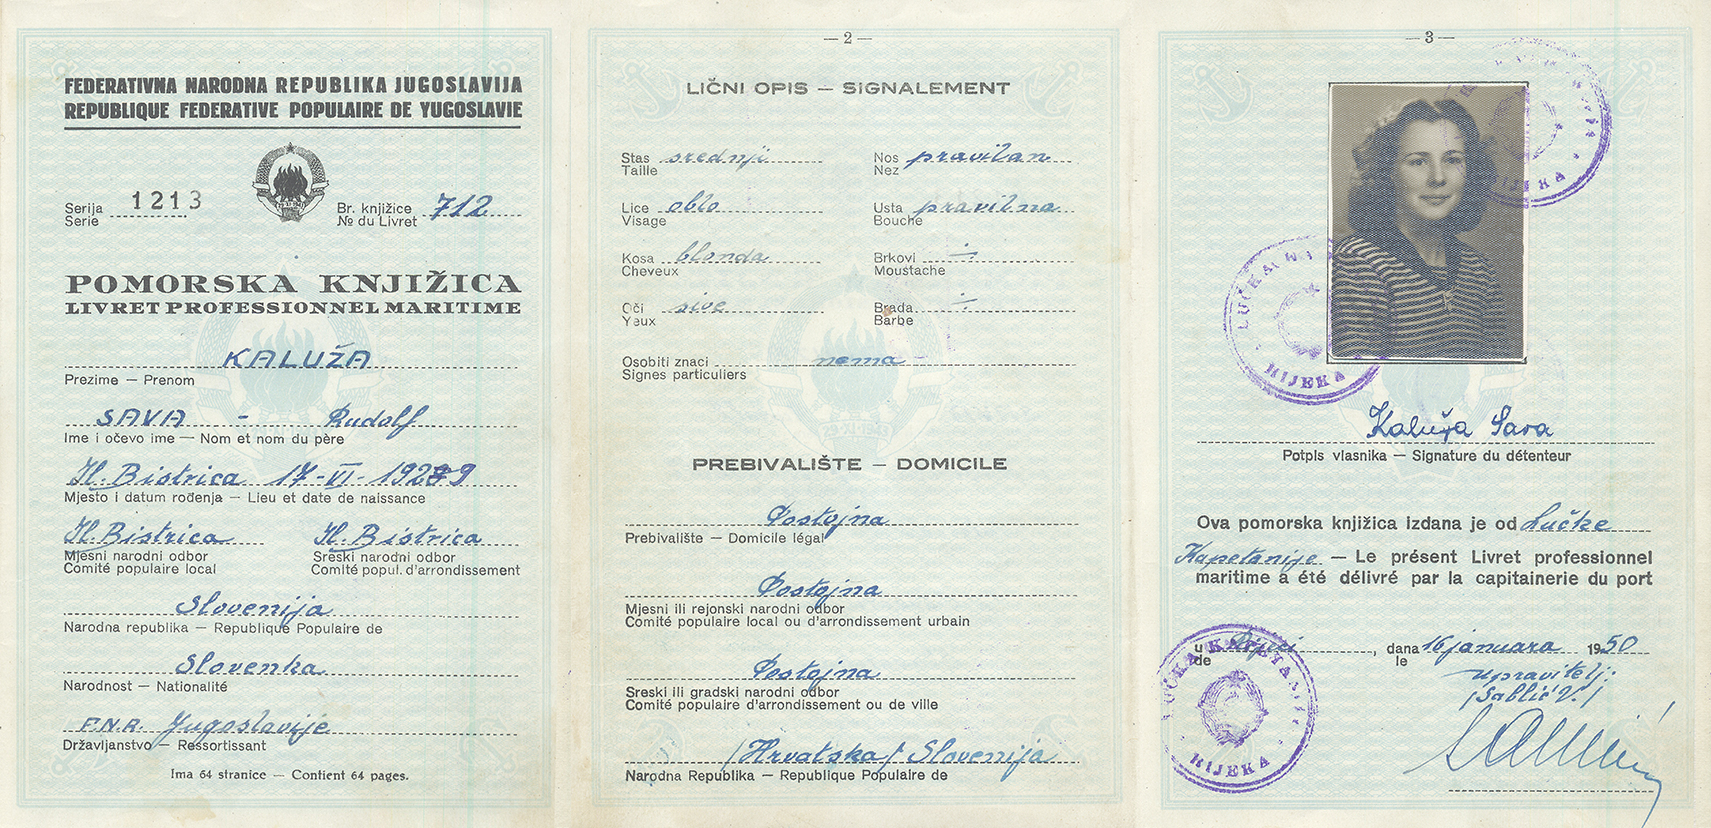 FEDERATIVNA NARODNA REPUBLIKA JUGOSLAVIJA
REPUBLIQUE FEDERATIVE POPULAIRE DE YUGOSLAVIE
Serija 1213 Br. knjižice 712
Serie № du Livret
POMORSKA KNJIŽICA
LIVRET PROFESSIONNEL MARITIME
KALUŽA
Prezime — Prenom
SAVA - Rudolf
Ime i očevo ime — Nom et nom du père
Il. Bistrica 17-VI-1929
Mjesto i datum rođenja — Lieu et date de naissance
Il. Bistrica Il. Bistrica
Mjesni narodni odbor Sreski narodni odbor
Comité populaire local Comité popul. d'arrondissement
Slovenija
Narodna republika — Republique Populaire de
Slovenka
Narodnost — Nationalité
F.N.R. Jugoslavije
Državljanstvo — Ressortissant
Ima 64 stranice — Contient 64 pages.
— 2 —
LIČNI OPIS — SIGNALEMENT
Stas srednji Nos pravilan
Taille Nez
Lice oblo Usta pravilna
Visage Bouche
Kosa blonda Brkovi
Cheveux Moustache
Oči sive Brada
Yeux Barbe
Osobiti znaci nema
Signes particuliers
PREBIVALIŠTE — DOMICILE
Postojna
Prebivalište — Domicile légal
Postojna
Mjesni ili rejonski narodni odbor
Comité populaire local ou d'arrondissement urbain
Postojna
Sreski ili gradski narodni odbor
Comité populaire d'arrondissement ou de ville
/Hrvatska/ Slovenija
Narodna Republika — Republique Populaire de
— 3 —
RIJEKA
LUČKA
RIJEKA
Kaluža Sava
Potpis vlasnika — Signature du détenteur
Ova pomorska knjižica izdana je od Lučke
Kapetanije — Le présent Livret professionnel
maritime a été délivré par la capitainerie du port
u Rijeci, dana 16 januara 1950
de le
upravitelj:
/Sablić V./
LUČKA KAPETANIJA
RIJEKA